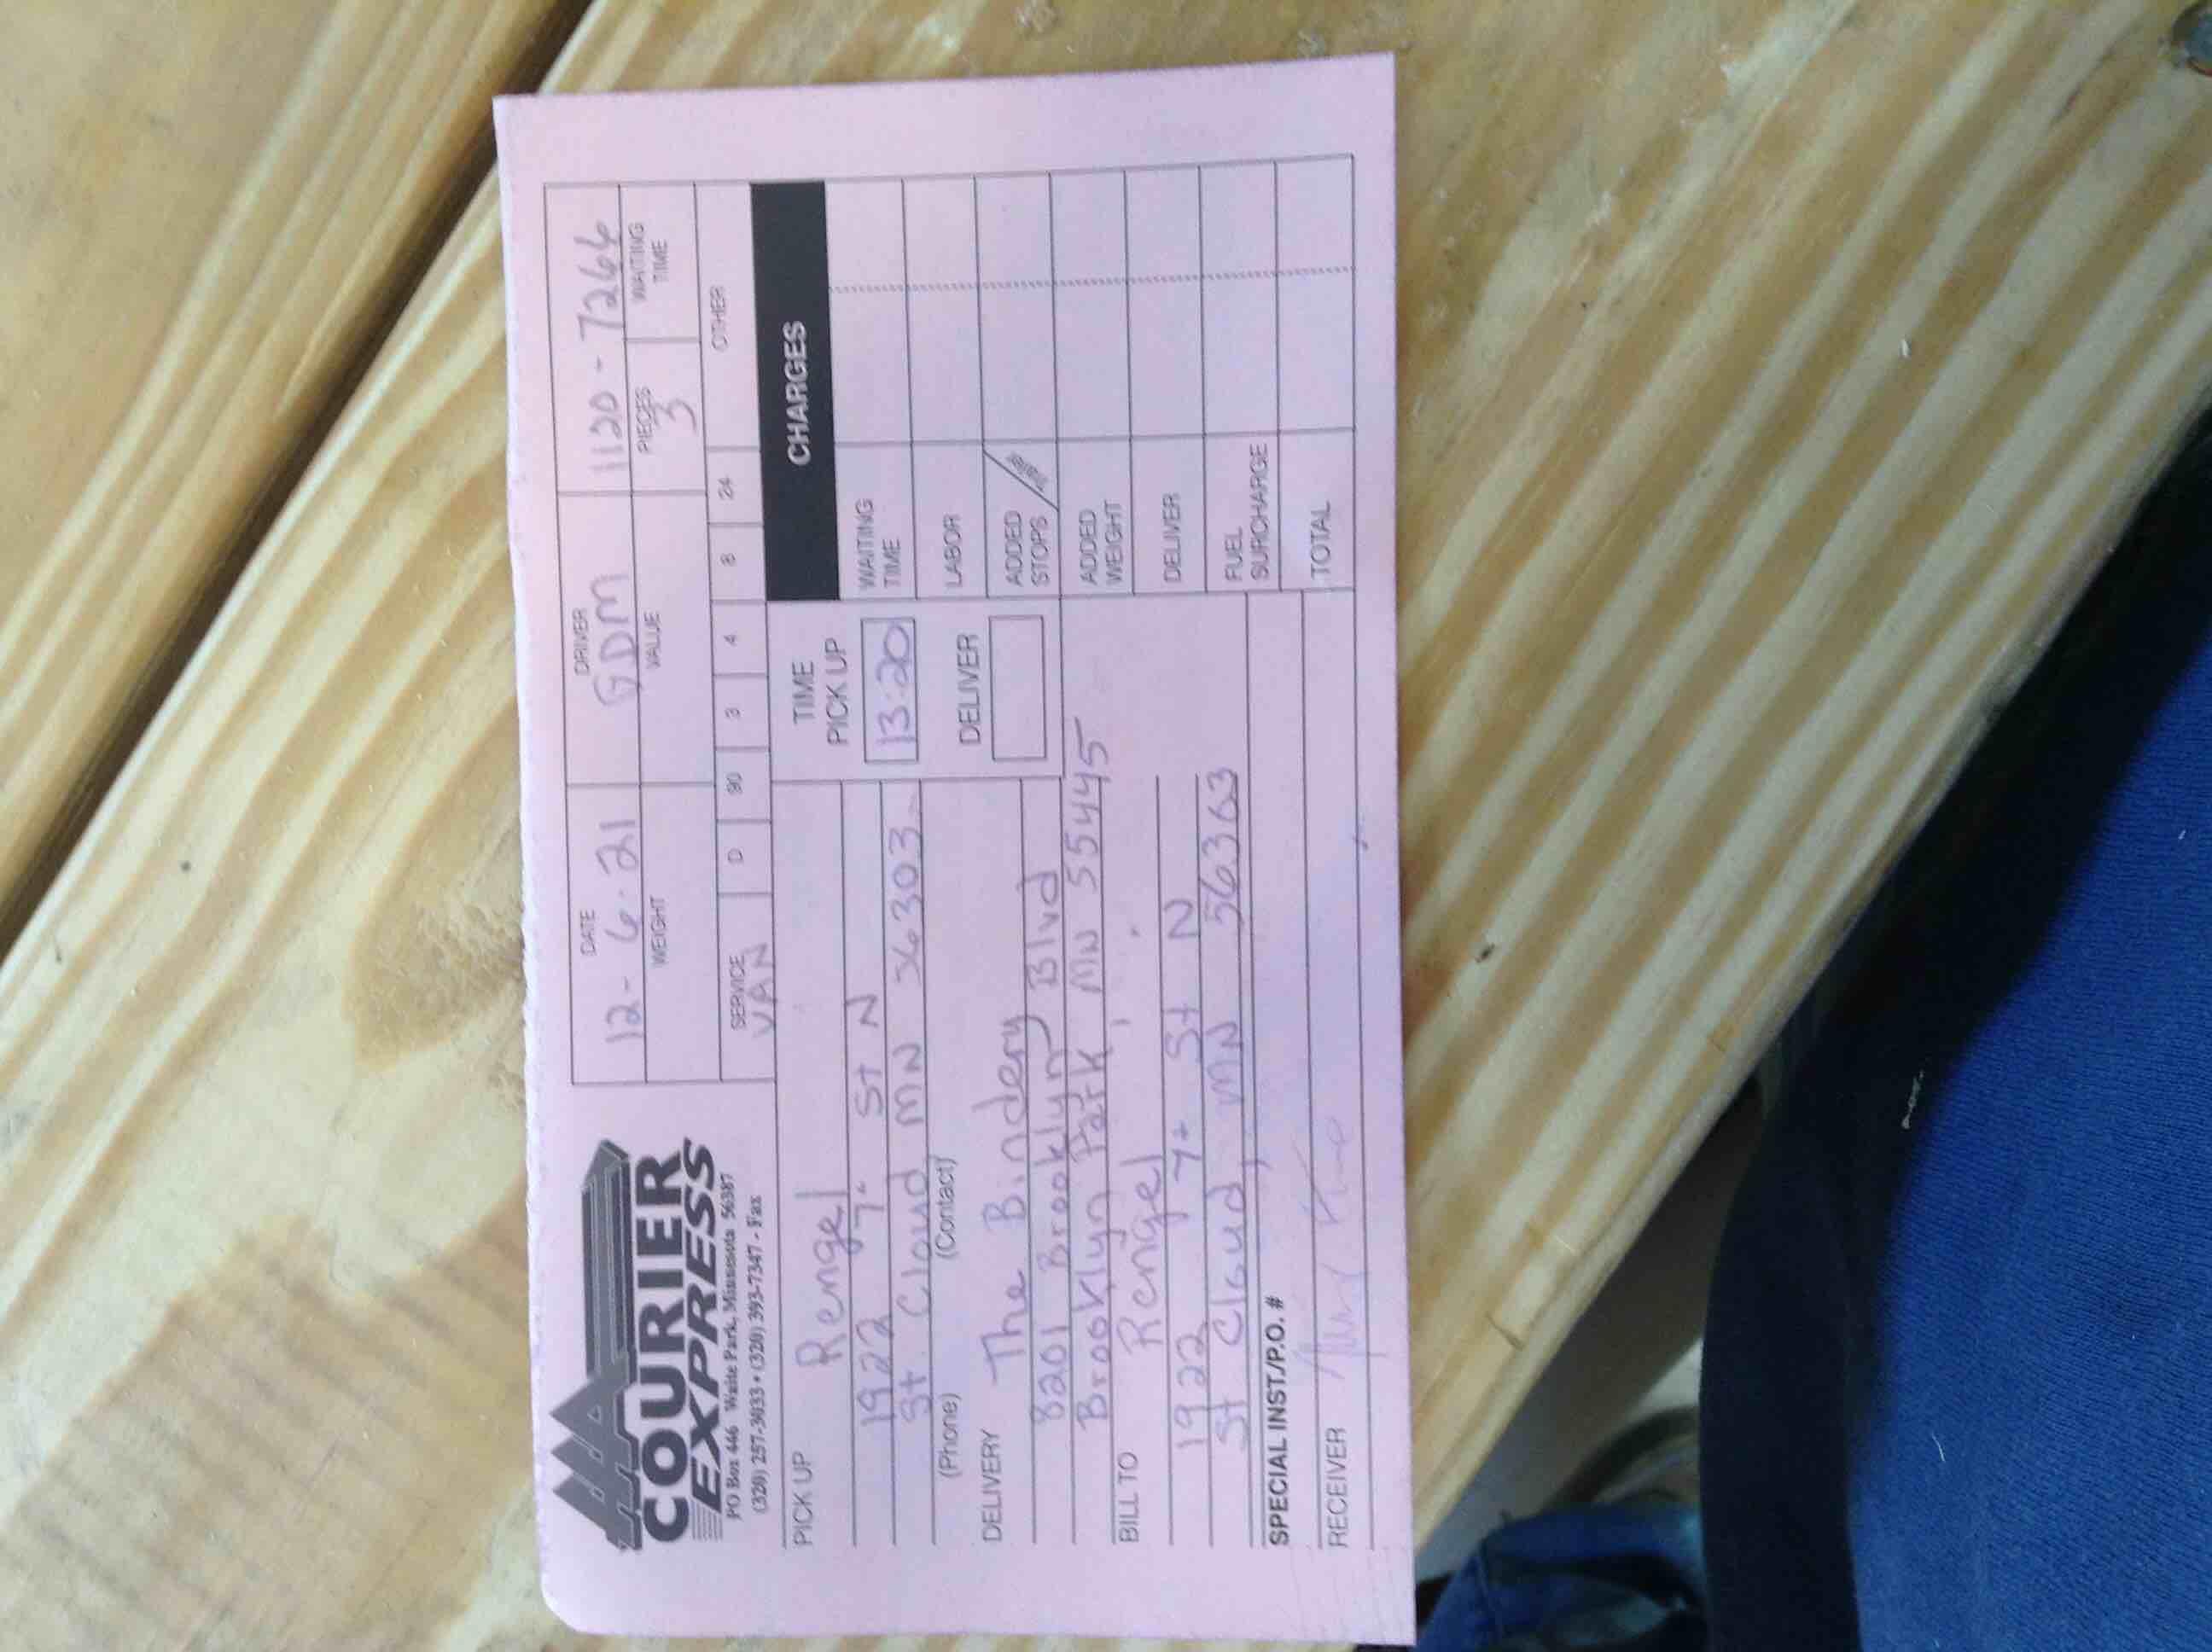 COURIER
EXPRESS
PO Box 446 Waite Park, Minnesota 56387
(320) 257-3033 • (320) 393-7347 - Fax
DATE DRIVER
12-6-21 GDM 1120-7266
WEIGHT VALUE PIECES WAITING TIME
3
SERVICE D 90 3 4 8 24 OTHER
VAN
PICK UP Rengel
1922 7th St N
St Cloud MN 56303
(Phone) (Contact)
TIME
PICK UP
13:20
DELIVER
DELIVERY The Bindery
8201 Brooklyn Blvd
Brooklyn Park MN 55445
BILL TO Rengel
1922 7th St N
St Cloud, MN 56303
SPECIAL INST./P.O. #
RECEIVER
CHARGES
WAITING
TIME
LABOR
ADDED
STOPS
ADDED
WEIGHT
DELIVER
FUEL
SURCHARGE
TOTAL